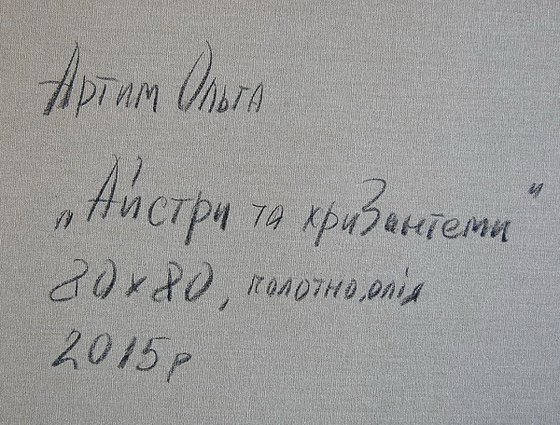 Артим Ольга
„Айстри та хризантеми"
80х80, полотно, олія
2015р